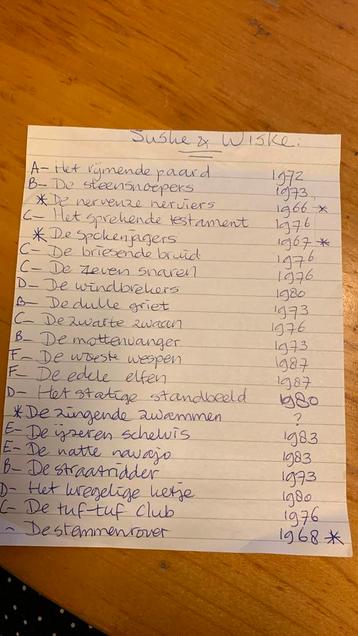 Suske & Wiske.
A- Het rijmende paard 1972
B- De steensnoepers 1973
* De nerveuze nerviers 1966 *
C- Het sprekende testament 1976
* De spokenjagers 1967 *
C- De briesende bruid 1976
C- De zeven snaren 1976
D- De windbrekers 1980
B- De dulle griet 1973
C- De zwarte zwaan 1976
B- De mottenvanger 1973
F- De woeste wespen 1987
F- De edele elfen 1987
D- Het statige standbeeld 1980
* De zingende zwammen ?
E- De ijzeren schelvis 1983
E- De natte navajo 1983
B- De straatridder 1973
D- Het kregelige ketje 1980
C- De tuf-tuf club 1976
~ De stemmenrover 1968 *